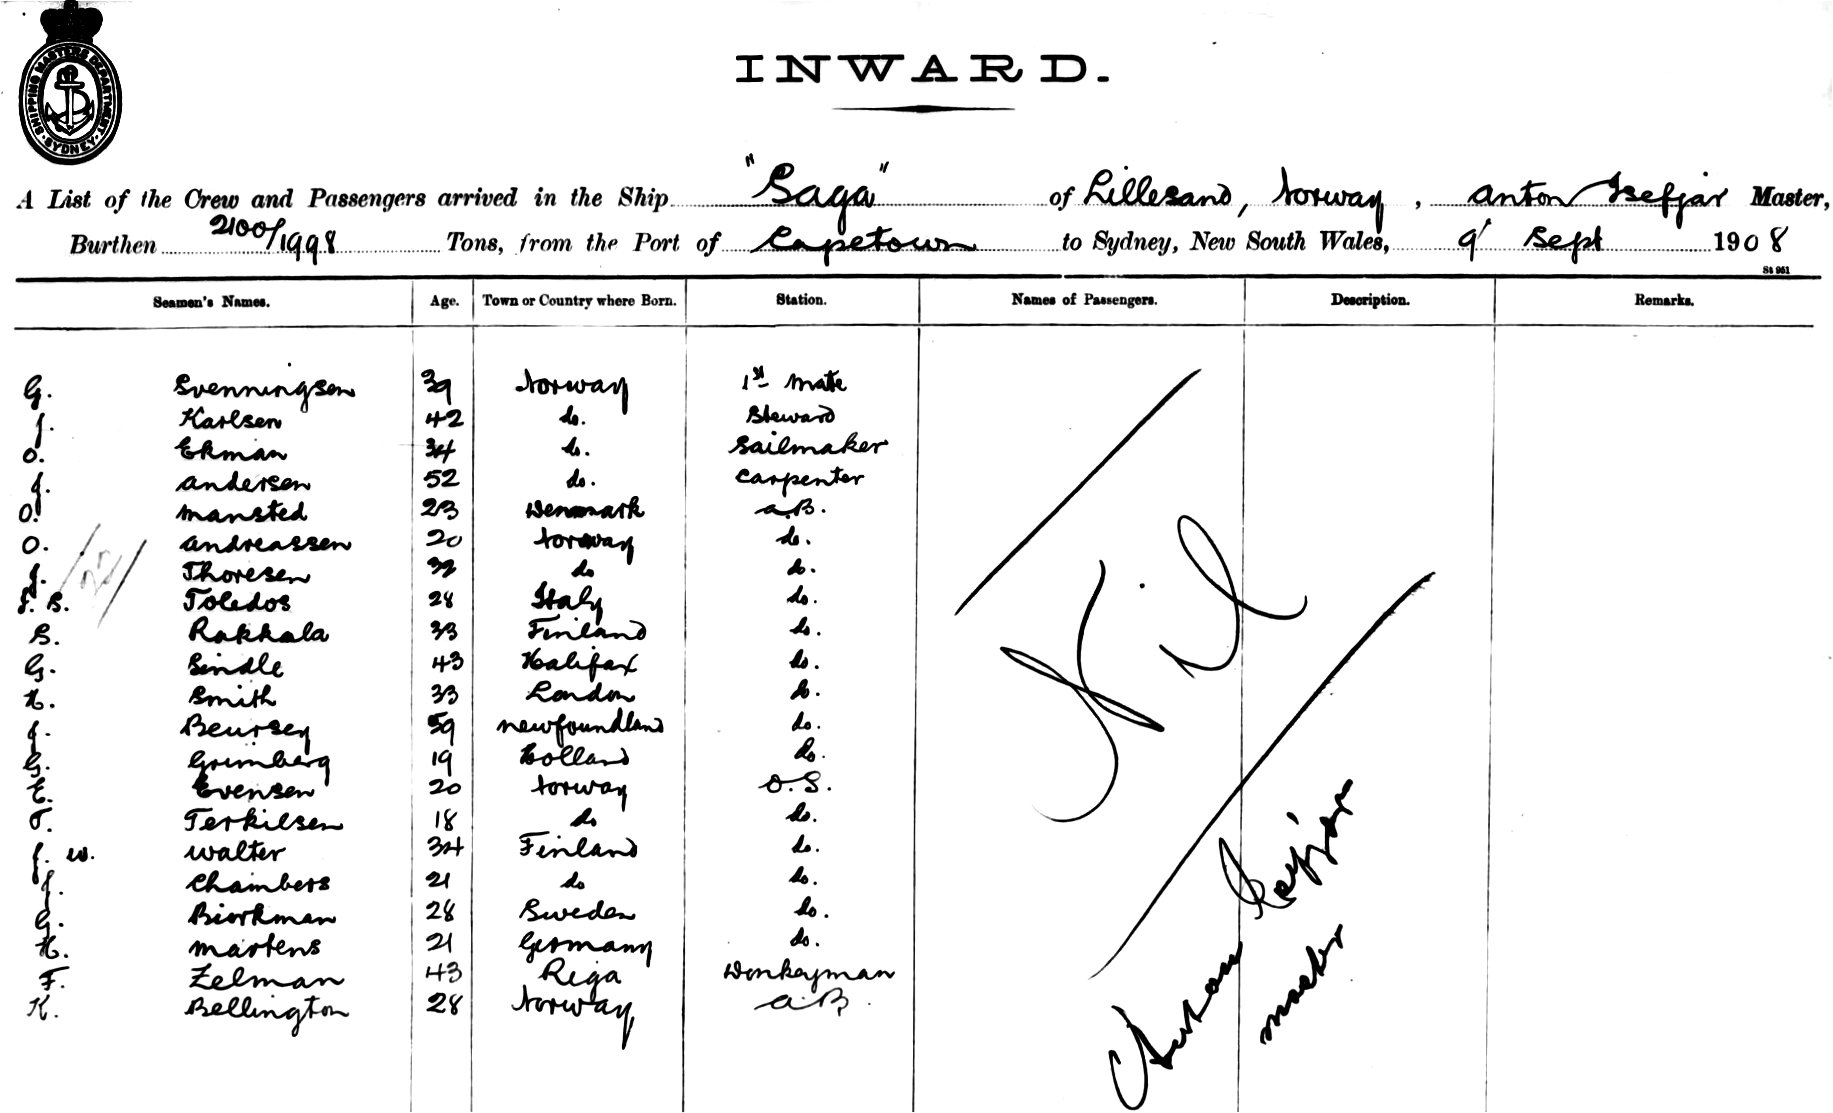 SHIPPING MASTERS DEPARTMENT
SYDNEY
INWARD.
A List of the Crew and Passengers arrived in the Ship "Saga" of Lillesand, Norway, Anton Isefjär Master,
Burthen 2100/1998 Tons, from the Port of Capetown to Sydney, New South Wales, 9' Sept 1908
St 961
Seamen's Names. Age. Town or Country where Born. Station. Names of Passengers. Description. Remarks.
G. Svenningsen 39 Norway 1st Mate
J. Karlsen 42 do. Steward
O. Ekman 34 do. Sailmaker
J. Andersen 52 do. Carpenter
O. Mansted 23 Denmark A.B.
O. Andreassen 20 Norway do.
J. Thoresen 32 do do.
F. S. Toledos 28 Italy do.
S. Rakkala 33 Finland do.
G. Sindle 43 Halifax do.
H. Smith 33 London do.
J. Beursey 59 Newfoundland do.
G. Grimberg 19 Holland do.
E. Evensen 20 Norway O.S.
T. Terkilsen 18 do do.
J. W. Walter 34 Finland do.
J. Chambers 21 do do.
G. Biorkman 28 Sweden do.
H. Martens 21 Germany do.
F. Zelman 43 Riga Donkeyman
K. Bellington 28 Norway A.B.
22
Nil
Anton Isefjär
master